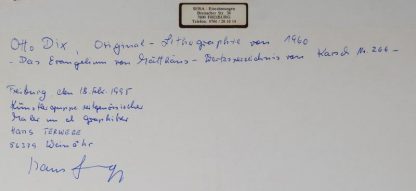 WIHA - Einrahmungen
Breisacher Str. 38
7800 FREIBURG
Telefon 0761 / 28 16 14
Otto Dix, Original - Lithographie von 1960
- Das Evangelium von Matthäus - Werkverzeichnis von Karsch Nr. 266 -
Freiburg, den 18. Febr. 1995
Künstlergruppe zeitgenössischer
Maler und Graphiker
Hans TERWEGE
56379 Weinähr
Hans